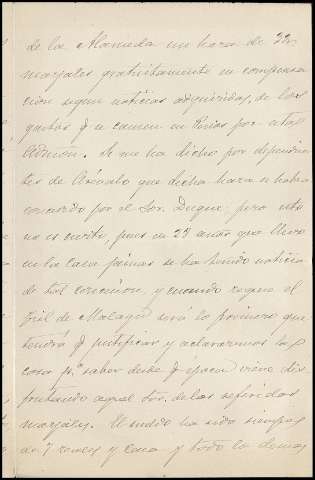 de la Alameda un haza de 22
marjales gratuitamente en compensa
cion segun noticias adquiridas, de los
gastos q se causen en por esta
Admon. Se me ha dicho por dependien
tes de Arévalo que dicha haza se habia
concedido por el Sor. Duque; pero esto
no es cierto, pues en 23 años que llevo
en la Casa jamas se ha tenido noticia
de tal concesion, y cuando regrese el
Gral de Malaga será lo primero que
tendrá q justificar y aclararemos la
cosa pa saber desde q epoca viene dis
frutando aquel Sor. de los referidos
marjales. El sueldo ha sido siempre
de 7 reales y casa y todo lo demas